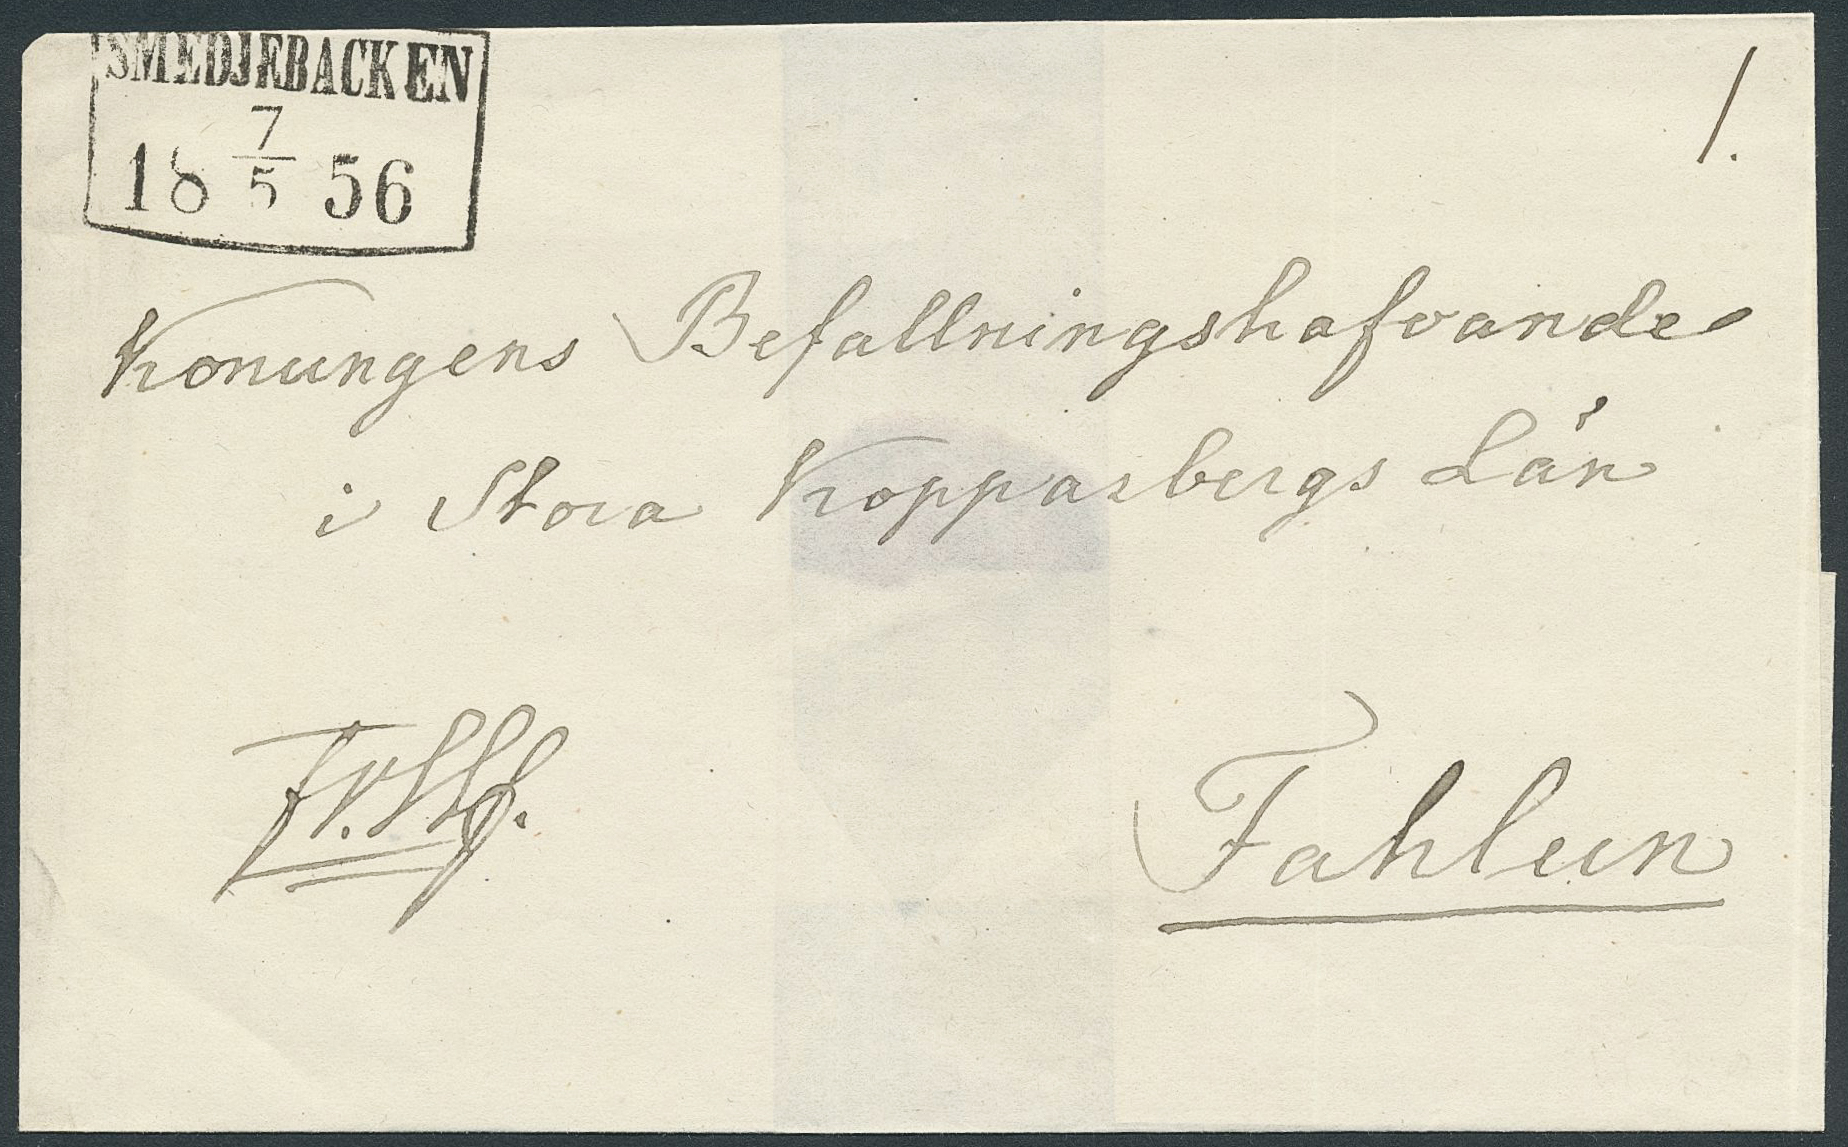 SMEDJEBACKEN
7
18 5 56
1.
Konungens Befallningshafvande
i Stora Kopparbergs Län
Fahlun